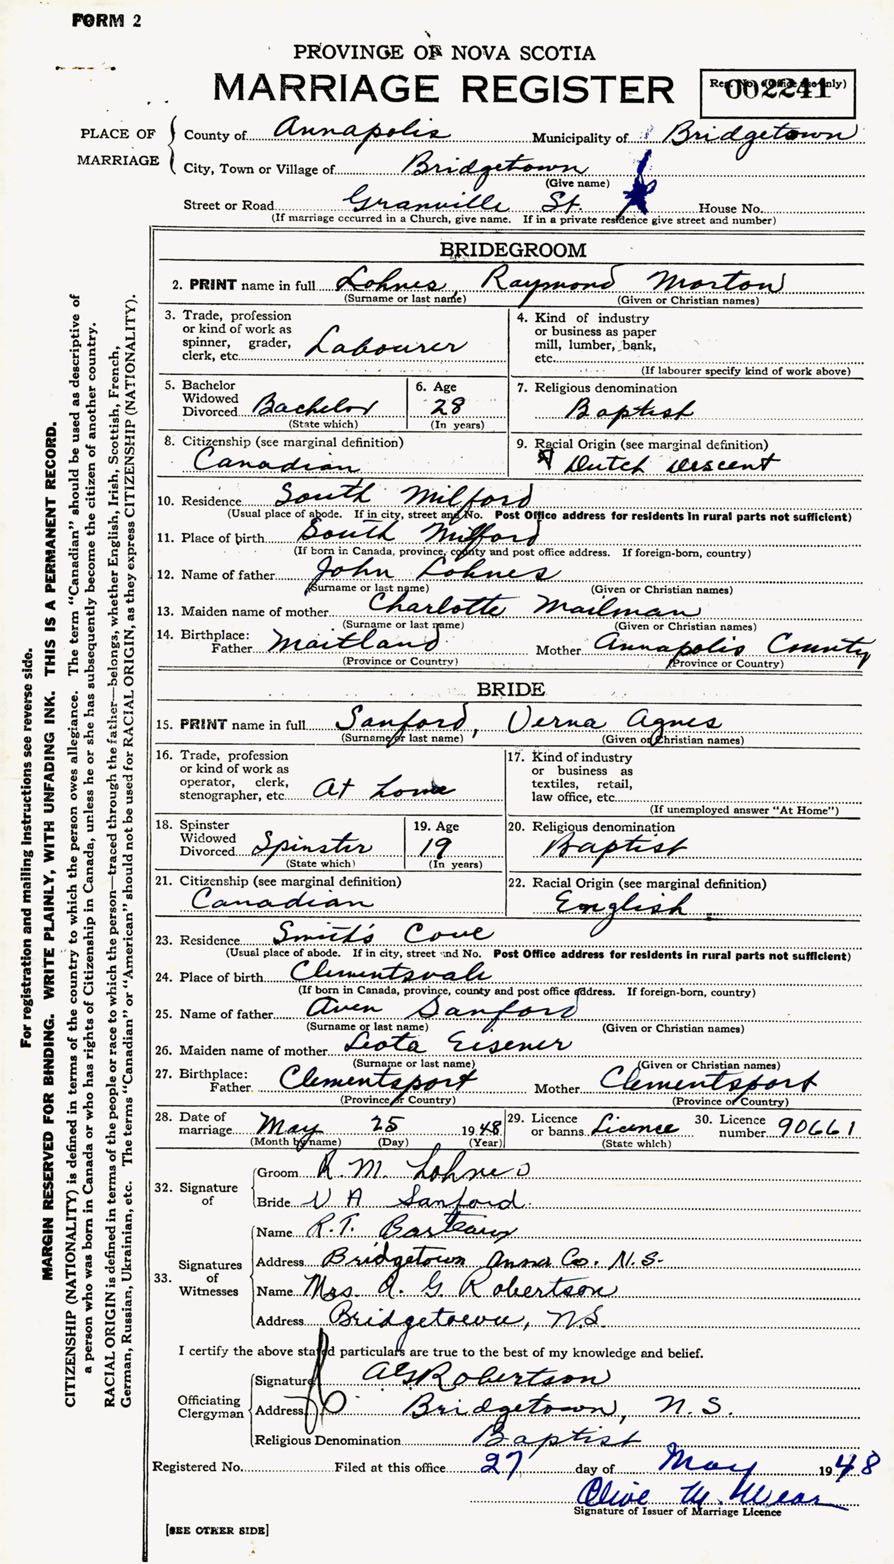 FORM 2
PROVINCE OF NOVA SCOTIA
MARRIAGE REGISTER
Reg. No. (Office use only)
002241
PLACE OF MARRIAGE
County of Annapolis Municipality of Bridgetown
City, Town or Village of Bridgetown
(Give name)
Street or Road Granville St. House No.
(If marriage occurred in a Church, give name. If in a private residence give street and number)
BRIDEGROOM
2. PRINT name in full Lohnes, Raymond Morton
(Surname or last name) (Given or Christian names)
3. Trade, profession or kind of work as spinner, grader, clerk, etc. Labourer
4. Kind of industry or business as paper mill, lumber, bank, etc.
(If labourer specify kind of work above)
5. Bachelor Widowed Divorced Bachelor
(State which)
6. Age 28
(In years)
7. Religious denomination
Baptist
8. Citizenship (see marginal definition)
Canadian
9. Racial Origin (see marginal definition)
Dutch Descent
10. Residence South Milford
(Usual place of abode. If in city, street and No. Post Office address for residents in rural parts not sufficient)
11. Place of birth South Milford
(If born in Canada, province, county and post office address. If foreign-born, country)
12. Name of father John Lohnes
(Surname or last name) (Given or Christian names)
13. Maiden name of mother Charlotte Mailman
(Surname or last name) (Given or Christian names)
14. Birthplace: Father Maitland Mother Annapolis County
(Province or Country) (Province or Country)
BRIDE
15. PRINT name in full Sanford, Verna Agnes
(Surname or last name) (Given or Christian names)
16. Trade, profession or kind of work as operator, clerk, stenographer, etc. At home
17. Kind of industry or business as textiles, retail, law office, etc.
(If unemployed answer "At Home")
18. Spinster Widowed Divorced Spinster
(State which)
19. Age 19
(In years)
20. Religious denomination
Baptist
21. Citizenship (see marginal definition)
Canadian
22. Racial Origin (see marginal definition)
English
23. Residence Smith's Cove
(Usual place of abode. If in city, street and No. Post Office address for residents in rural parts not sufficient)
24. Place of birth Clementsvale
(If born in Canada, province, county and post office address. If foreign-born, country)
25. Name of father Aven Sanford
(Surname or last name) (Given or Christian names)
26. Maiden name of mother Leota Eisener
(Surname or last name) (Given or Christian names)
27. Birthplace: Father Clementsport Mother Clementsport
(Province or Country) (Province or Country)
28. Date of marriage May 25 1948
(Month by name) (Day) (Year)
29. Licence or banns Licence
(State which)
30. Licence number 90661
32. Signature of
Groom R. M. Lohnes
Bride V A Sanford
33. Signatures of Witnesses
Name R. T. Barteaux
Address Bridgetown Anna Co. N.S.
Name Mrs. A. G. Robertson
Address Bridgetown, N.S.
I certify the above stated particulars are true to the best of my knowledge and belief.
Officiating Clergyman
Signature A G Robertson
Address Bridgetown, N.S.
Religious Denomination Baptist
Registered No. Filed at this office 27 day of May 1948
Olive M. Wear
Signature of Issuer of Marriage Licence
[SEE OTHER SIDE]
For registration and mailing instructions see reverse side.
MARGIN RESERVED FOR BINDING. WRITE PLAINLY, WITH UNFADING INK. THIS IS A PERMANENT RECORD.
CITIZENSHIP (NATIONALITY) is defined in terms of the country to which the person owes allegiance. The term "Canadian" should be used as descriptive of
a person who was born in Canada or who has rights of Citizenship in Canada, unless he or she has subsequently become the citizen of another country.
RACIAL ORIGIN is defined in terms of the people or race to which the person—traced through the father—belongs, whether English, Irish, Scottish, French,
German, Russian, Ukrainian, etc. The terms "Canadian" or "American" should not be used for RACIAL ORIGIN, as they express CITIZENSHIP (NATIONALITY).